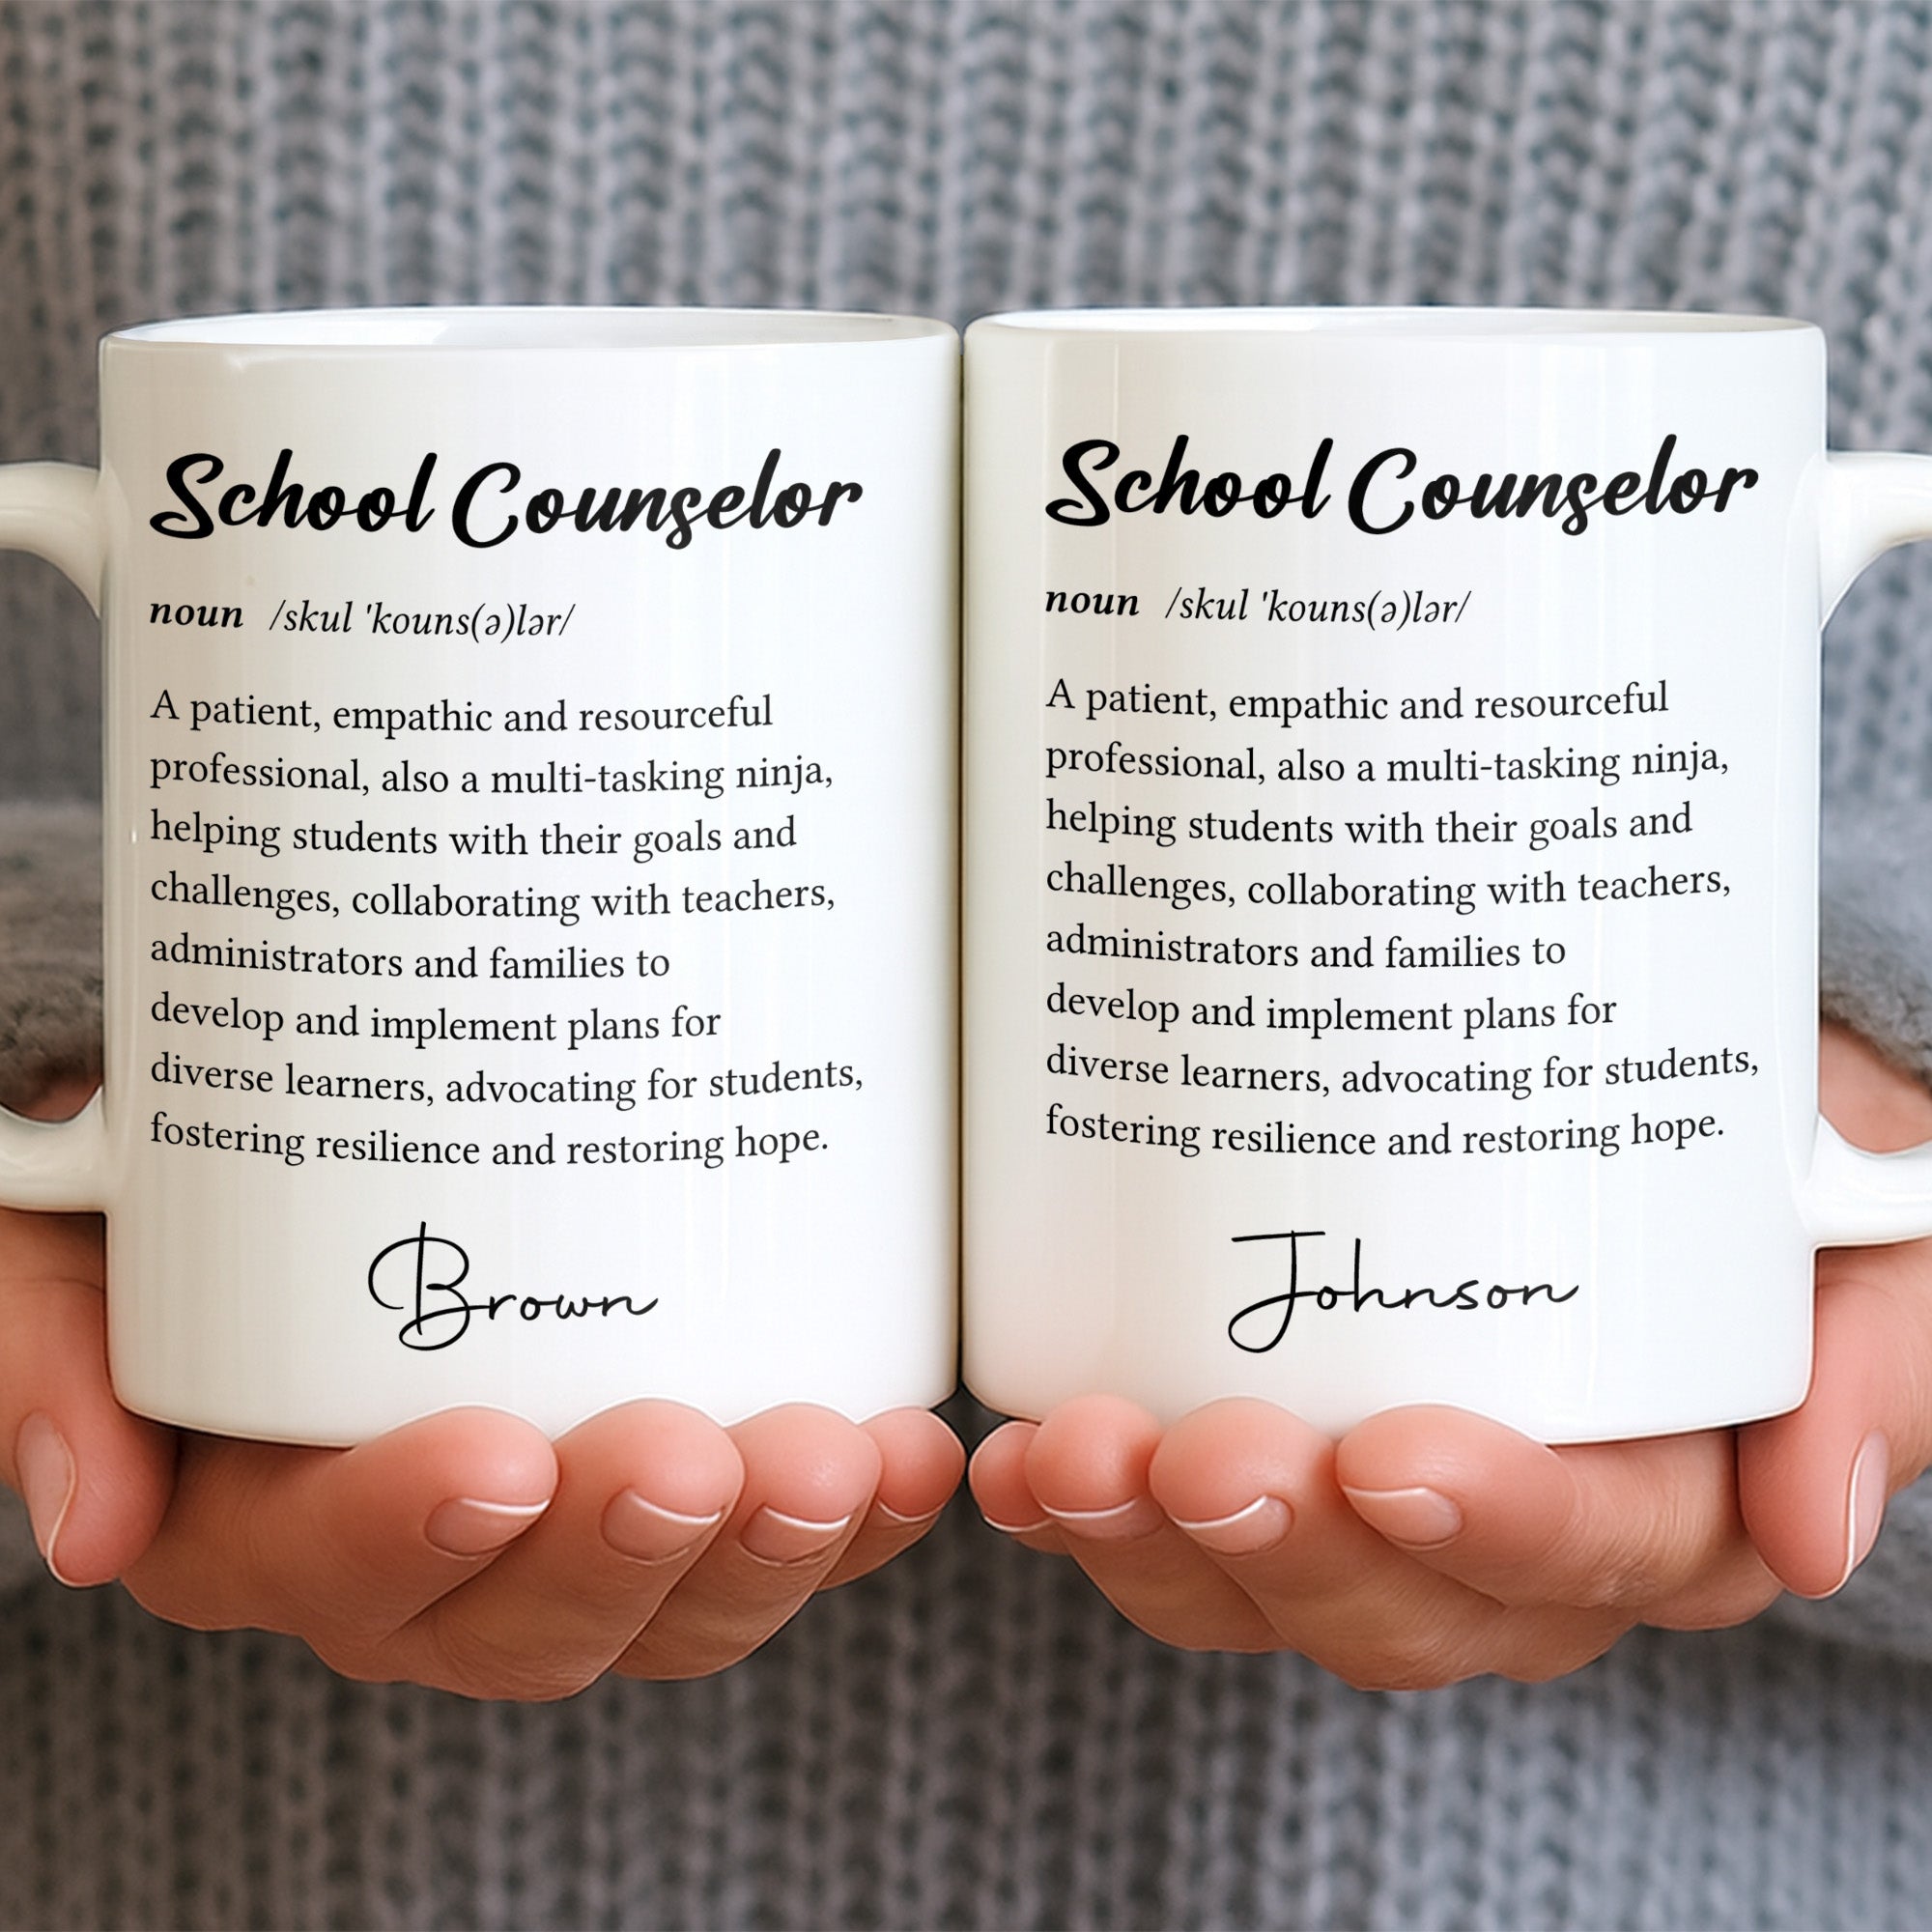 School Counselor
noun /skul 'kouns(ə)lər/
A patient, empathic and resourceful
professional, also a multi-tasking ninja,
helping students with their goals and
challenges, collaborating with teachers,
administrators and families to
develop and implement plans for
diverse learners, advocating for students,
fostering resilience and restoring hope.
Brown
School Counselor
noun /skul 'kouns(ə)lər/
A patient, empathic and resourceful
professional, also a multi-tasking ninja,
helping students with their goals and
challenges, collaborating with teachers,
administrators and families to
develop and implement plans for
diverse learners, advocating for students,
fostering resilience and restoring hope.
Johnson